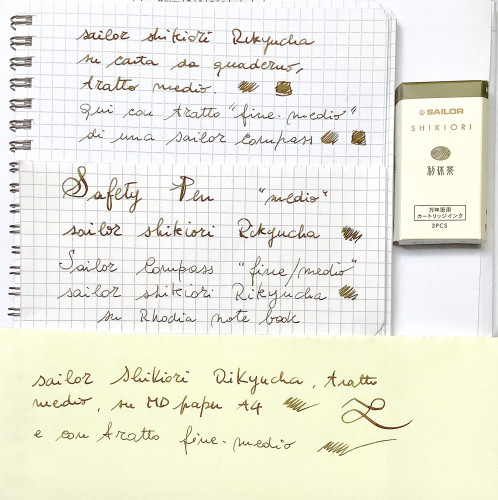 sailor shikiori Rikyucha
su carta da quaderno,
tratto medio.
qui con tratto "fine-medio"
di una sailor compass
Safety Pen "medio"
sailor shikiori Rikyucha
Sailor Compass "fine/medio"
sailor shikiori Rikyucha
su Rhodia note book
sailor Shikiori Rikyucha, tratto
medio, su MD paper A4
e con tratto fine-medio
SAILOR
SHIKIORI
利休茶
万年筆用
カートリッジインク
3PCS